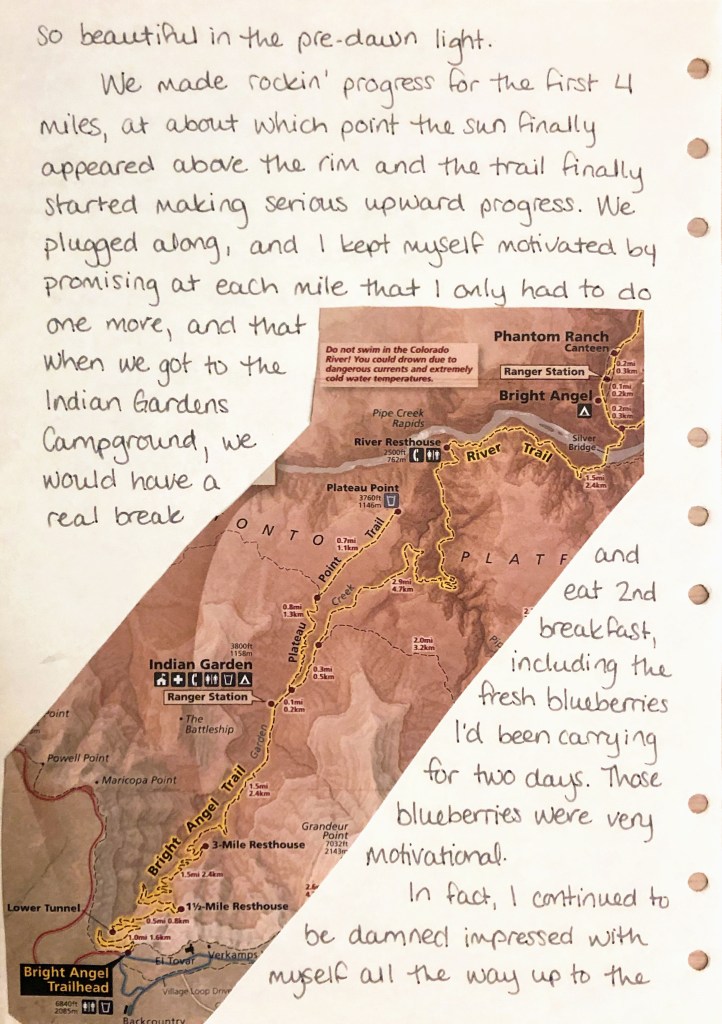 so beautiful in the pre-dawn light.
We made rockin' progress for the first 4
miles, at about which point the sun finally
appeared above the rim and the trail finally
started making serious upward progress. We
plugged along, and I kept myself motivated by
promising at each mile that I only had to do
one more, and that
when we got to the
Indian Gardens
Campground, we
would have a
real break
and
eat 2nd
breakfast,
including the
fresh blueberries
I'd been carrying
for two days. Those
blueberries were very
motivational.
In fact, I continued to
be damned impressed with
myself all the way up to the
Do not swim in the Colorado
River! You could drown due to
dangerous currents and extremely
cold water temperatures.
Phantom Ranch
Canteen
0.2mi
0.3km
Ranger Station
0.1mi
0.2km
Bright Angel
0.2mi
0.3km
Pipe Creek
Rapids
River Resthouse
2500ft
762m
River Trail
Silver
Bridge
1.5mi
2.4km
Plateau Point
3760ft
1146m
ONTO
PLATF
0.7mi
1.1km
Plateau Point Trail
Creek
2.9mi
4.7km
0.8mi
1.3km
2.0mi
3.2km
Pip
3800ft
1158m
Indian Garden
0.3mi
0.5km
Ranger Station
0.1mi
0.2km
The
Battleship
Garden
oint
Powell Point
Maricopa Point
1.5mi
2.4km
Bright Angel Trail
Grandeur
Point
7032ft
2143m
3-Mile Resthouse
1.5mi 2.4km
1½-Mile Resthouse
Lower Tunnel
0.5mi 0.8km
1.0mi 1.6km
El Tovar
Verkamps
Bright Angel
Trailhead
6840ft
2085m
Village Loop Drive
Backcountry